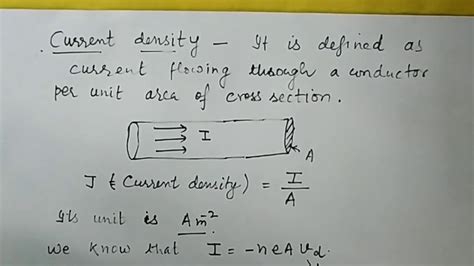 . Current density – It is defined as
current flowing through a conductor
per unit area of cross section.
I
A
J (Current density) = I/A
Its unit is Am⁻²
we know that I = -neAvd.